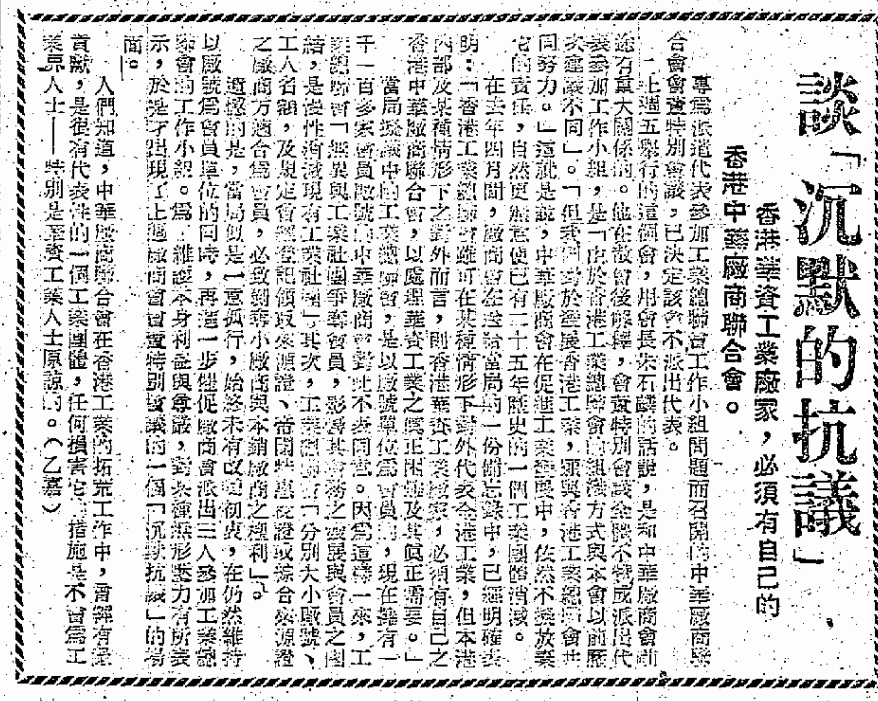 談「沉默的抗議」
香港華資工業廠家，必須有自己的
香港中華廠商聯合會。
專爲派遣代表參加工業總聯會工作小組問題而召開的中華廠商聯
合會會董特別會議，已決定該會不派出代表。
上週五舉行的這個會，用會長朱石麟的話說，是和中華廠商會前
途有重大關係的。他在散會後解釋，會董特別會議全體不贊成派出代
表參加工作小組，是「由於香港工業總聯會的組織方式與本會以前歷
次建議不同」。「但我們對於發展香港工業，願與香港工業總聯會共
同努力。」這就是說，中華廠商會在促進工業發展中，依然不放棄
它的責任，自然更無意使已有二十五年歷史的一個工業團體消滅。
在去年四月間，廠商會在送給當局的一份備忘錄中，已經明確表
明：「香港工業總聯會雖可在某種情形下對外代表全港工業，但本港
內部及某種情形下之對外而言，則香港華資工業廠家，必須有自己之
香港中華廠商聯合會，以處理華資工業之眞正困難及其眞正需要。」
當局擬議中的工業總聯會，是以廠號單位爲會員的，現在擁有一
千一百多家會員廠號的中華廠商會對此不表同意。因爲這樣一來，工
業總聯會「無異與工業社團爭奪會員，影響其會務之發展與會員之團
結，是慢性消滅現有工業社團」。其次，工業總聯會「分別大小廠號、
工人名額，及規定曾經登記領取來源證、帝國特惠稅證或綜合來源證
之廠商方適合爲會員，必致剝奪小廠商與本銷廠商之權利」。
遺憾的是，當局似是一意孤行，始終未有改變初衷，在仍然維持
以廠號爲會員單位的同時，再進一步催促廠商會派出三人參加工業總
聯會的工作小組。爲了維護本身利益與尊嚴，對某種無形壓力有所表
示，於是才出現了上週廠商會會董特別會議的一個「沉默抗議」的場
面。
人們知道，中華廠商聯合會在香港工業的拓荒工作中，有
貢獻，是很有代表性的一個工業團體，任何損害它的措施是不會爲工
業界人士——特別是華資工業人士原諒的。（乙嘉）